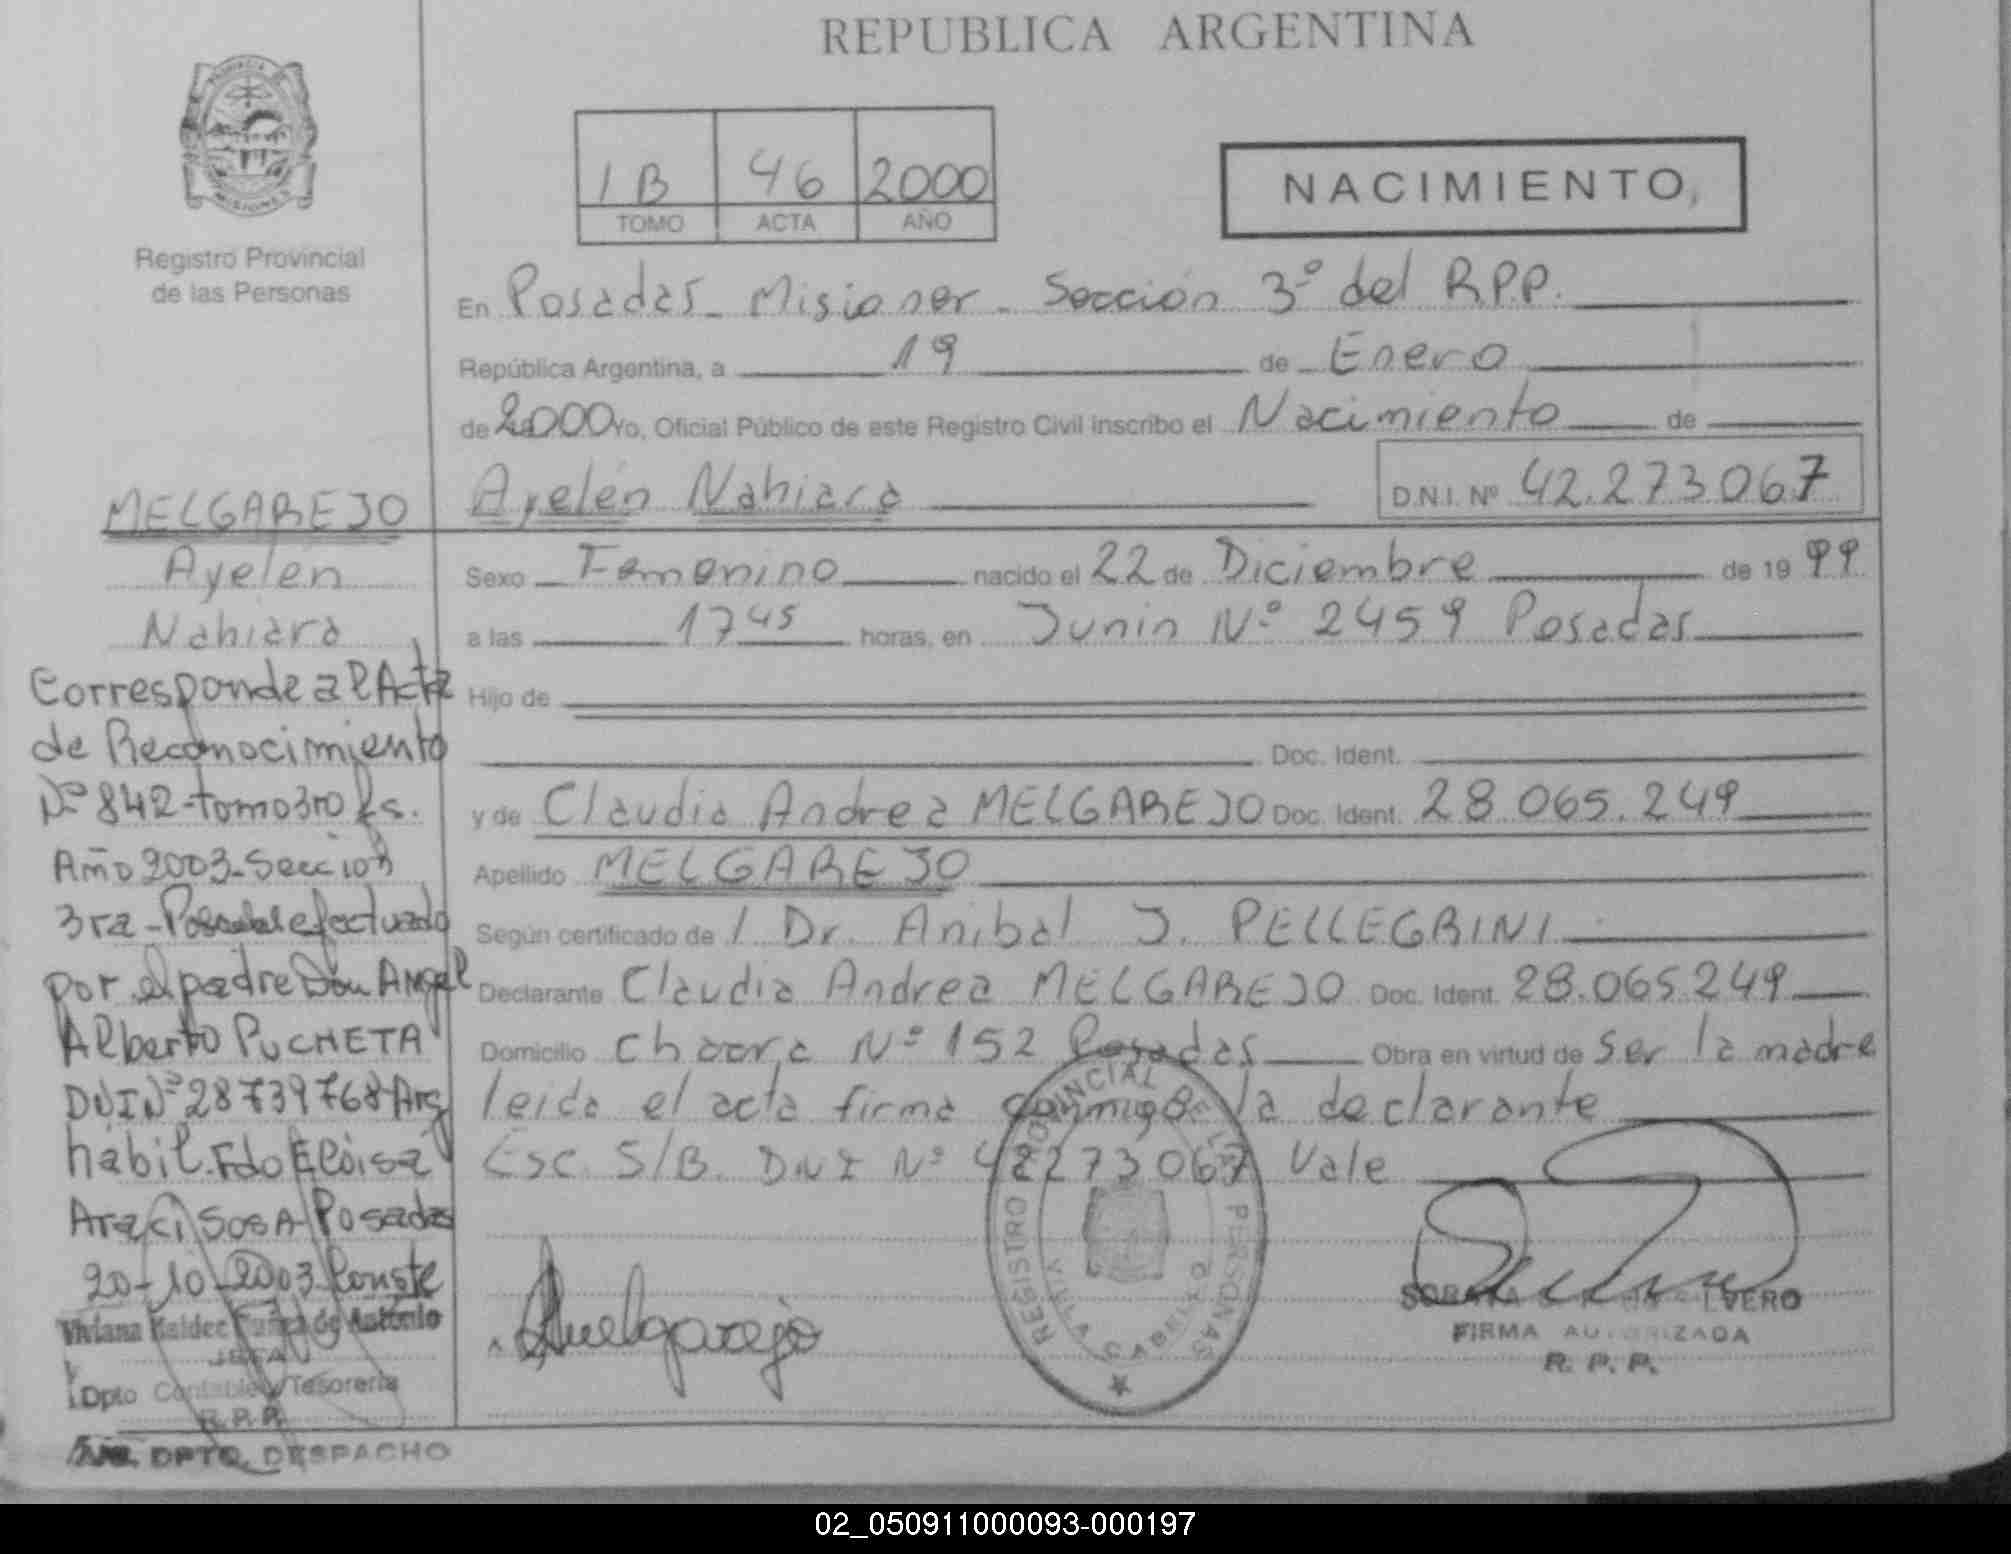 REPUBLICA ARGENTINA
PROVINCIA
MISIONES
Registro Provincial
de las Personas
1B 46 2000
TOMO ACTA AÑO
NACIMIENTO
En Posadas - Misiones - Sección 3º del R.P.P.
República Argentina, a 19 de Enero
de 2000 Yo, Oficial Público de este Registro Civil inscribo el Nacimiento de
Ayelén Nahiara D.N.I. Nº 42.273.067
Sexo Femenino nacido el 22 de Diciembre de 19 99
a las 17 45 horas, en Junin Nº 2459 Posadas
Hijo de
Doc. Ident.
y de Claudia Andrea MELGAREJO Doc. Ident. 28.065.249
Apellido MELGAREJO
Según certificado de 1 Dr. Anibal J. PELLEGRINI
Declarante Claudia Andrea MELGAREJO Doc. Ident. 28.065.249
Domicilio chacra Nº 152 Posadas Obra en virtud de ser la madre
leida el acta firma conmigo la declarante
Esc. S/B. DNI Nº 42273067 Vale
MELGAREJO
Ayelén
Nahiara
Corresponde al Acta
de Reconocimiento
Nº 842-tomo 3ro fs.
Año 2003-Sección
3ra-Posadas efectuado
por el padre Don Angel
Alberto PUCHETA
DNI Nº 28739768 Arg
habil. Fdo Eloisa
Araci SOSA-Posadas
20-10-2003 Conste
Viviana de Antonio
JEFA
Dpto Contable y Tesorería
R.P.P.
DPTO. DESPACHO
Melgarejo
REGISTRO PROVINCIAL DE LAS PERSONAS
FIRMA AUTORIZADA
R. P. P.
02_050911000093-000197